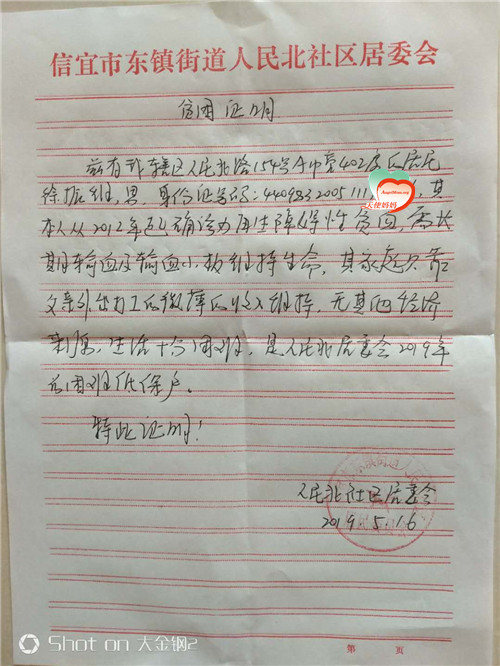 信宜市东镇街道人民北社区居委会
贫困证明
兹有我辖区人民北路154号A幢402房居民
徐振班,男,身份证号码:440983200511,其
本人从2012年确诊为再生障碍性贫血,需长
期输血及输血小板维持生命,其家庭只靠
父亲外出打工的微薄的收入维持,无其他经济
来源,生活十分困难,是人民北居委会2019年
困难低保户。
特此证明!
人民北社区居委会
2019.5.16
天使妈妈
第 页
Shot on 大金钢2